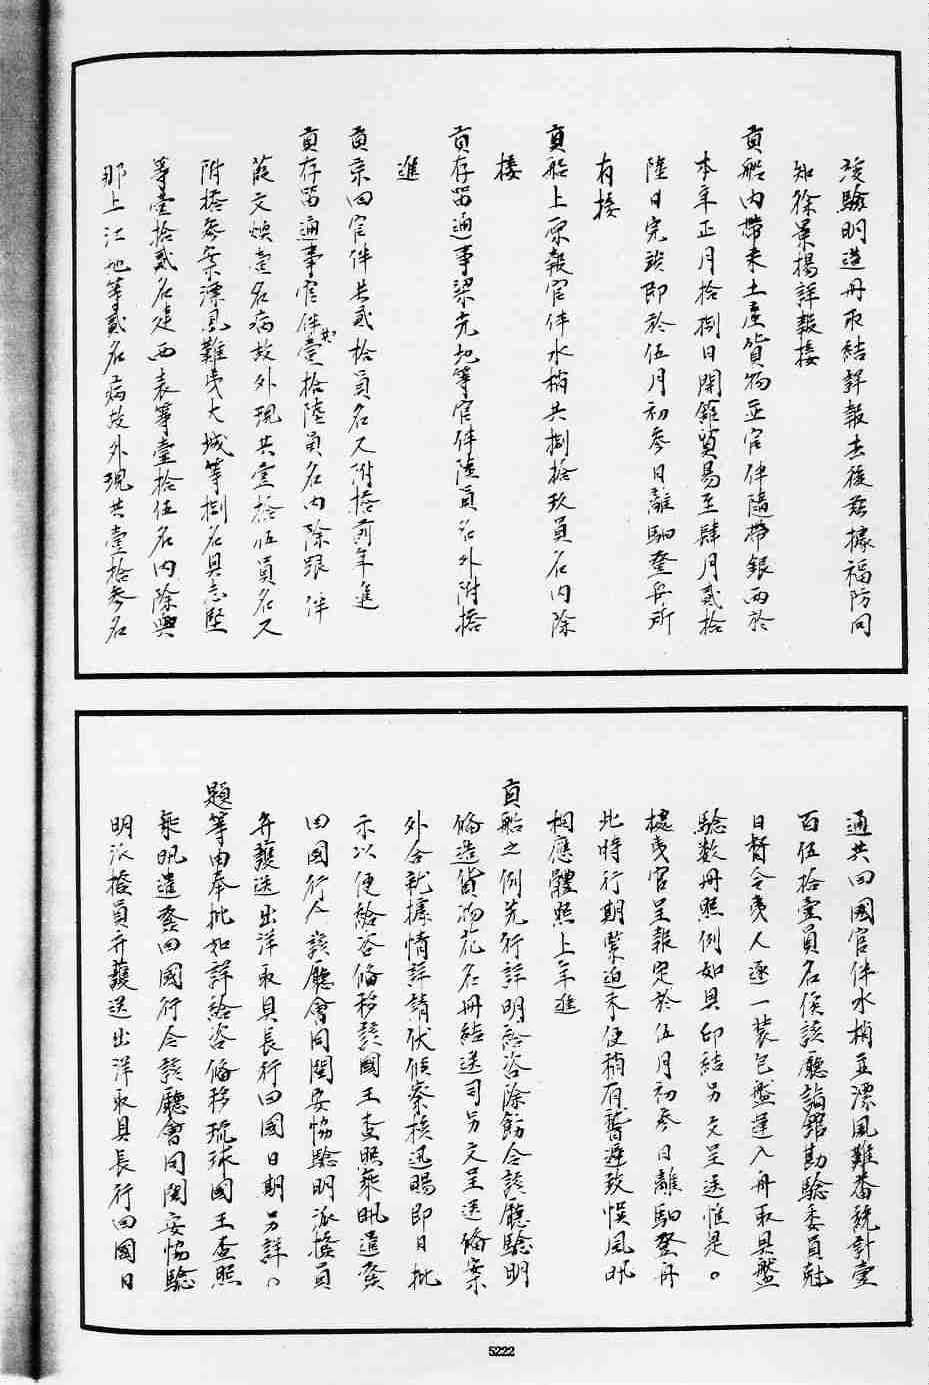 後驗明造册取結詳報去後茲據福防同
知徐景揚詳報接
貢船內帶來土產貨物並官伴隨帶銀兩於
本年正月拾捌日開館貿易至肆月貳拾
陸日完竣即於伍月初參日離驛登舟所
有接
貢船上原報官伴水梢共捌拾玖員名內除
接
貢存留通事梁允地等官伴陸員名外附搭
進
貢京回官伴共貳拾員名又附搭前年進
貢存留通事官伴共壹拾陸員名內除跟伴
葭文煥壹名病故外現共壹拾伍員名又
附搭參案漂風難夷大城等捌名具志堅
等壹拾貳名是西表等壹拾伍名內除與
那上江地等貳名病故外現共壹拾參名
通共回國官伴水梢並漂風難番統計壹
百伍拾壹員名俟該廳詣館勘驗委員尅
日督令夷人逐一裝包盤運入舟取具盤
驗數册照例加具印結另文呈送惟是。
據夷官呈報定於伍月初參日離驛登舟
此時行期緊迫未便稍有諮遲致悞風帆
相應體照上年進
貢船之例先行詳明給咨除飭令該廳驗明
備造貨物花名册結送司另文呈送備案
外合就據情詳請伏候察核迅賜即日批
示以便給咨備移該國王查照乘帆遣發
回國行令該廳會同閩安協驗明派撥員
弁護送出洋取具長行回國日期另詳。
題等由奉批如詳給咨備移琉球國王查照
乘帆遣發回國行令該廳會同閩安協驗
明派撥員弁護送出洋取具長行回國日
5222